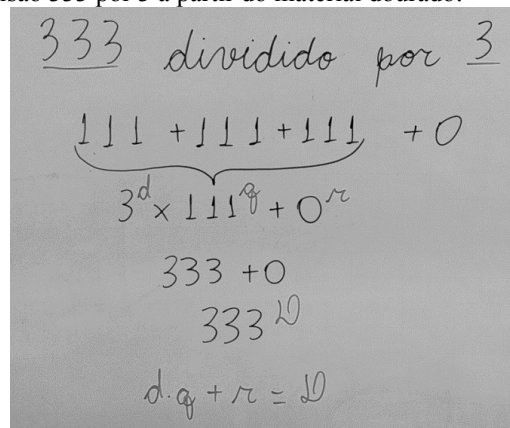 333 dividido por 3
111 + 111 + 111 + 0
3ᵈ x 111^q + 0ʳ
333 + 0
333ᴰ
d.q + r = D